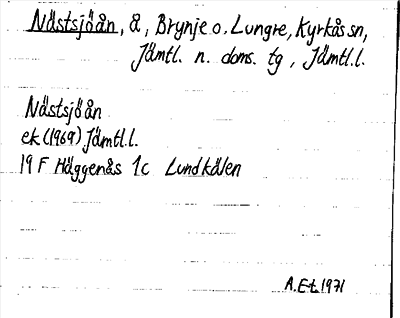 Nästsjöån, å, Brynje o. Lungre, Kyrkås sn,
Jämtl. n. doms. tg, Jämtl.l.
Nästsjöån
ek (1969) Jämtl.l.
19 F Häggenås 1c Lundkälen
A.E-t 1971